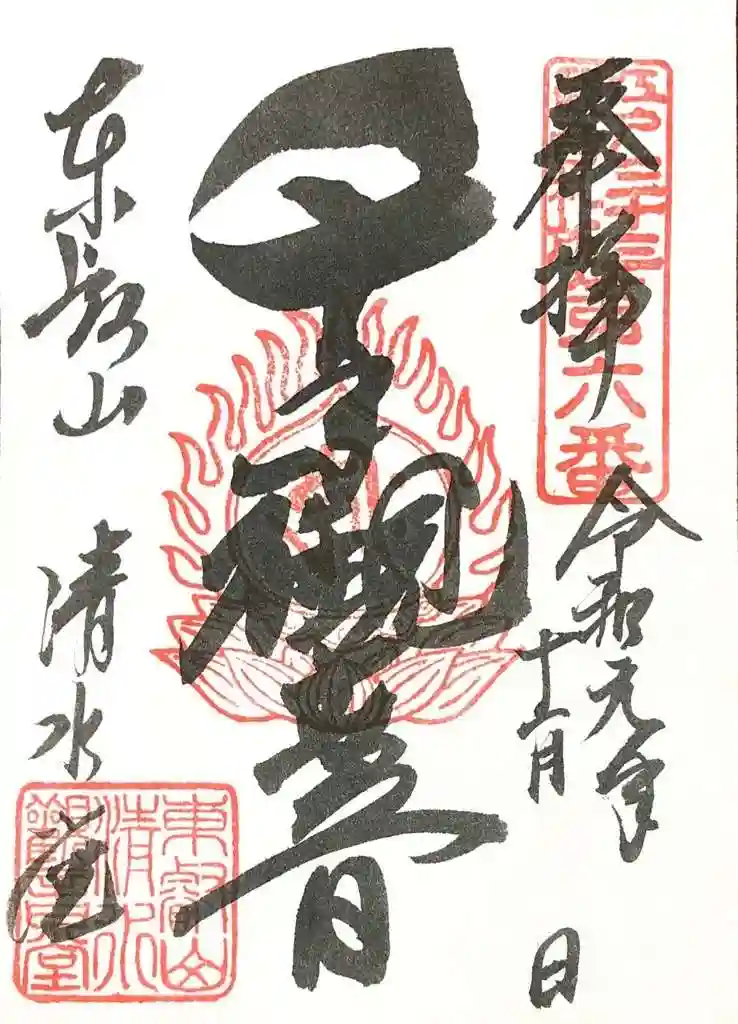 奉拝
六番
令和元年
十二月
日
千手観音
東叡山
清水堂
東叡山
清水
観音堂